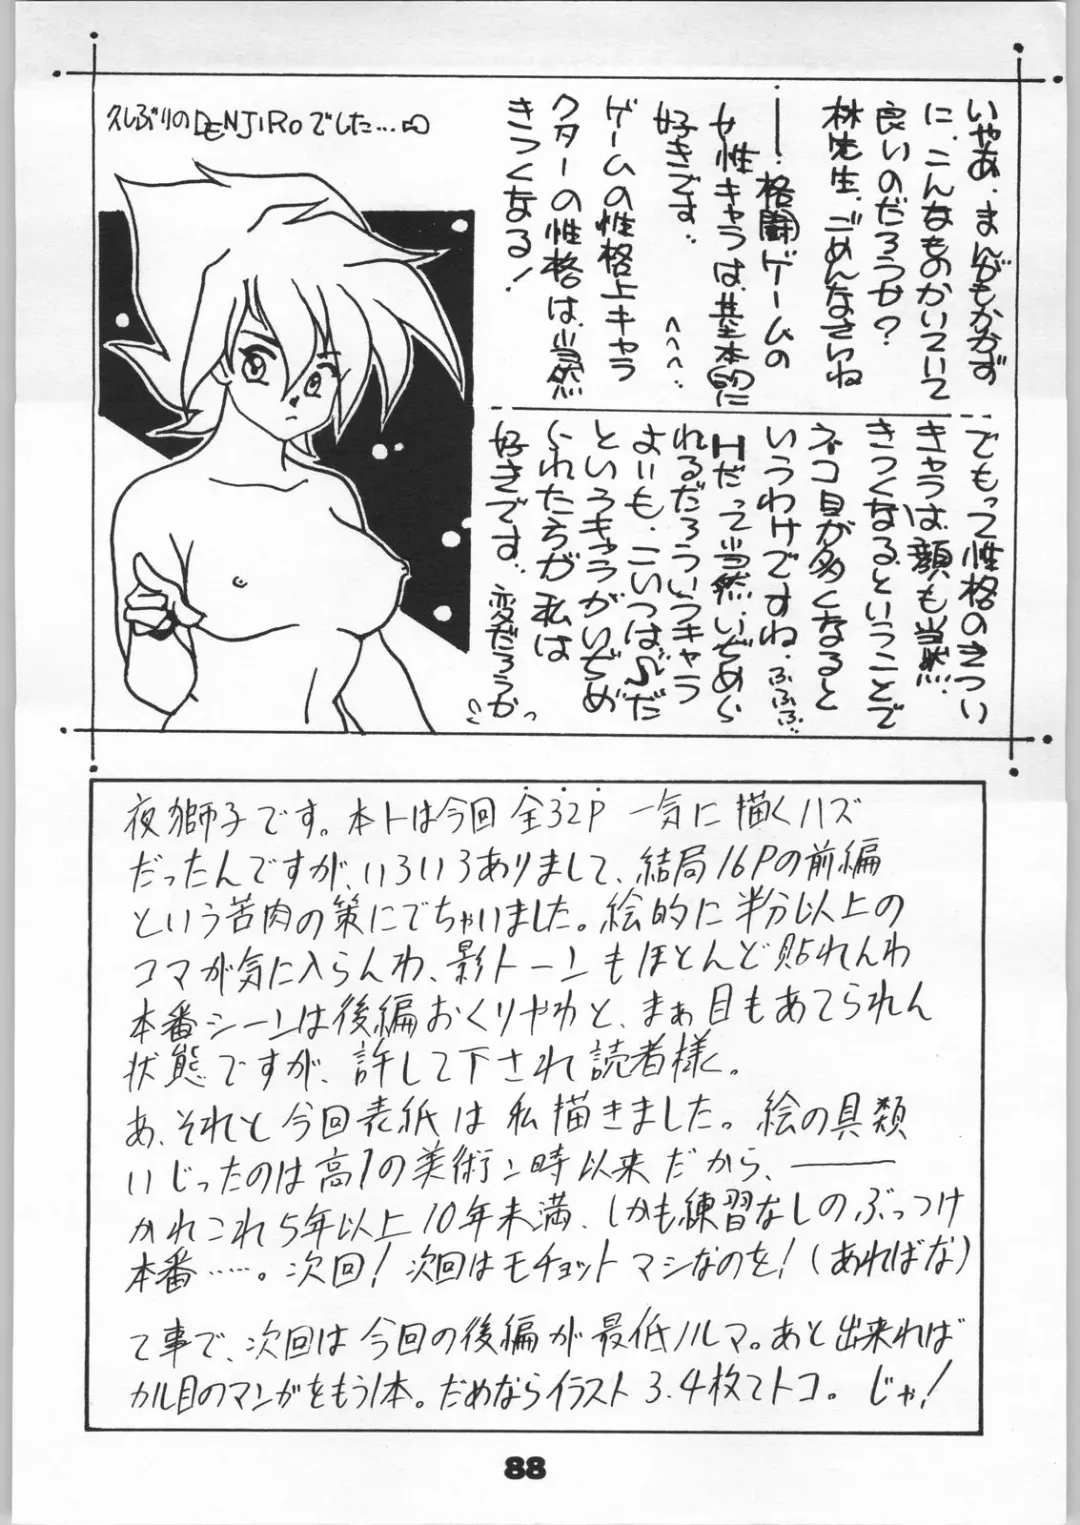 久しぶりのDENJIROでした…
いやあ、まんがもかかず
に、こんなものかいていて
良いのだろうか?
林先生、ごめんなさいね
――格闘ゲームの
女性キャラは、基本的に
好きです。へへへ
ゲームの性格上キャラ
クターの性格は、当然
きつくなる!
でもって性格のきつい
キャラは、顔も当然、
きつくなるということで
ネコ目が多くなると
いうわけですね、ふふふ
Hだって当然、いぢめら
れるだろういうキャラ
よいも、こいつは♪だ
というキャラがいぢめ
られた方が私は
好きです。変だろうか
夜獅子です。本トは今回全32P 一気に描くハズ
だったんですが、いろいろありまして、結局16Pの前編
という苦肉の策にでちゃいました。絵的に半分以上の
コマが気に入らんわ、影トーンもほとんど貼れんわ
本番シーンは後編おくりやわと、まぁ目もあてられん
状態ですが、許して下され読者様。
あ、それと今回表紙は私描きました。絵の具類
いじったのは高1の美術ン時以来だから、――
かれこれ5年以上10年未満、しかも練習なしのぶっつけ
本番……。次回!次回はモチョットマシなのを!(あればな)
て事で、次回は今回の後編が最低ノルマ。あと出来れば
カル目のマンガをもう1本。だめならイラスト3、4枚てトコ。じゃ!
88